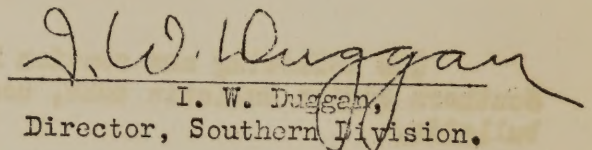 I. W. Duggan
I. W. Duggan,
Director, Southern Division.